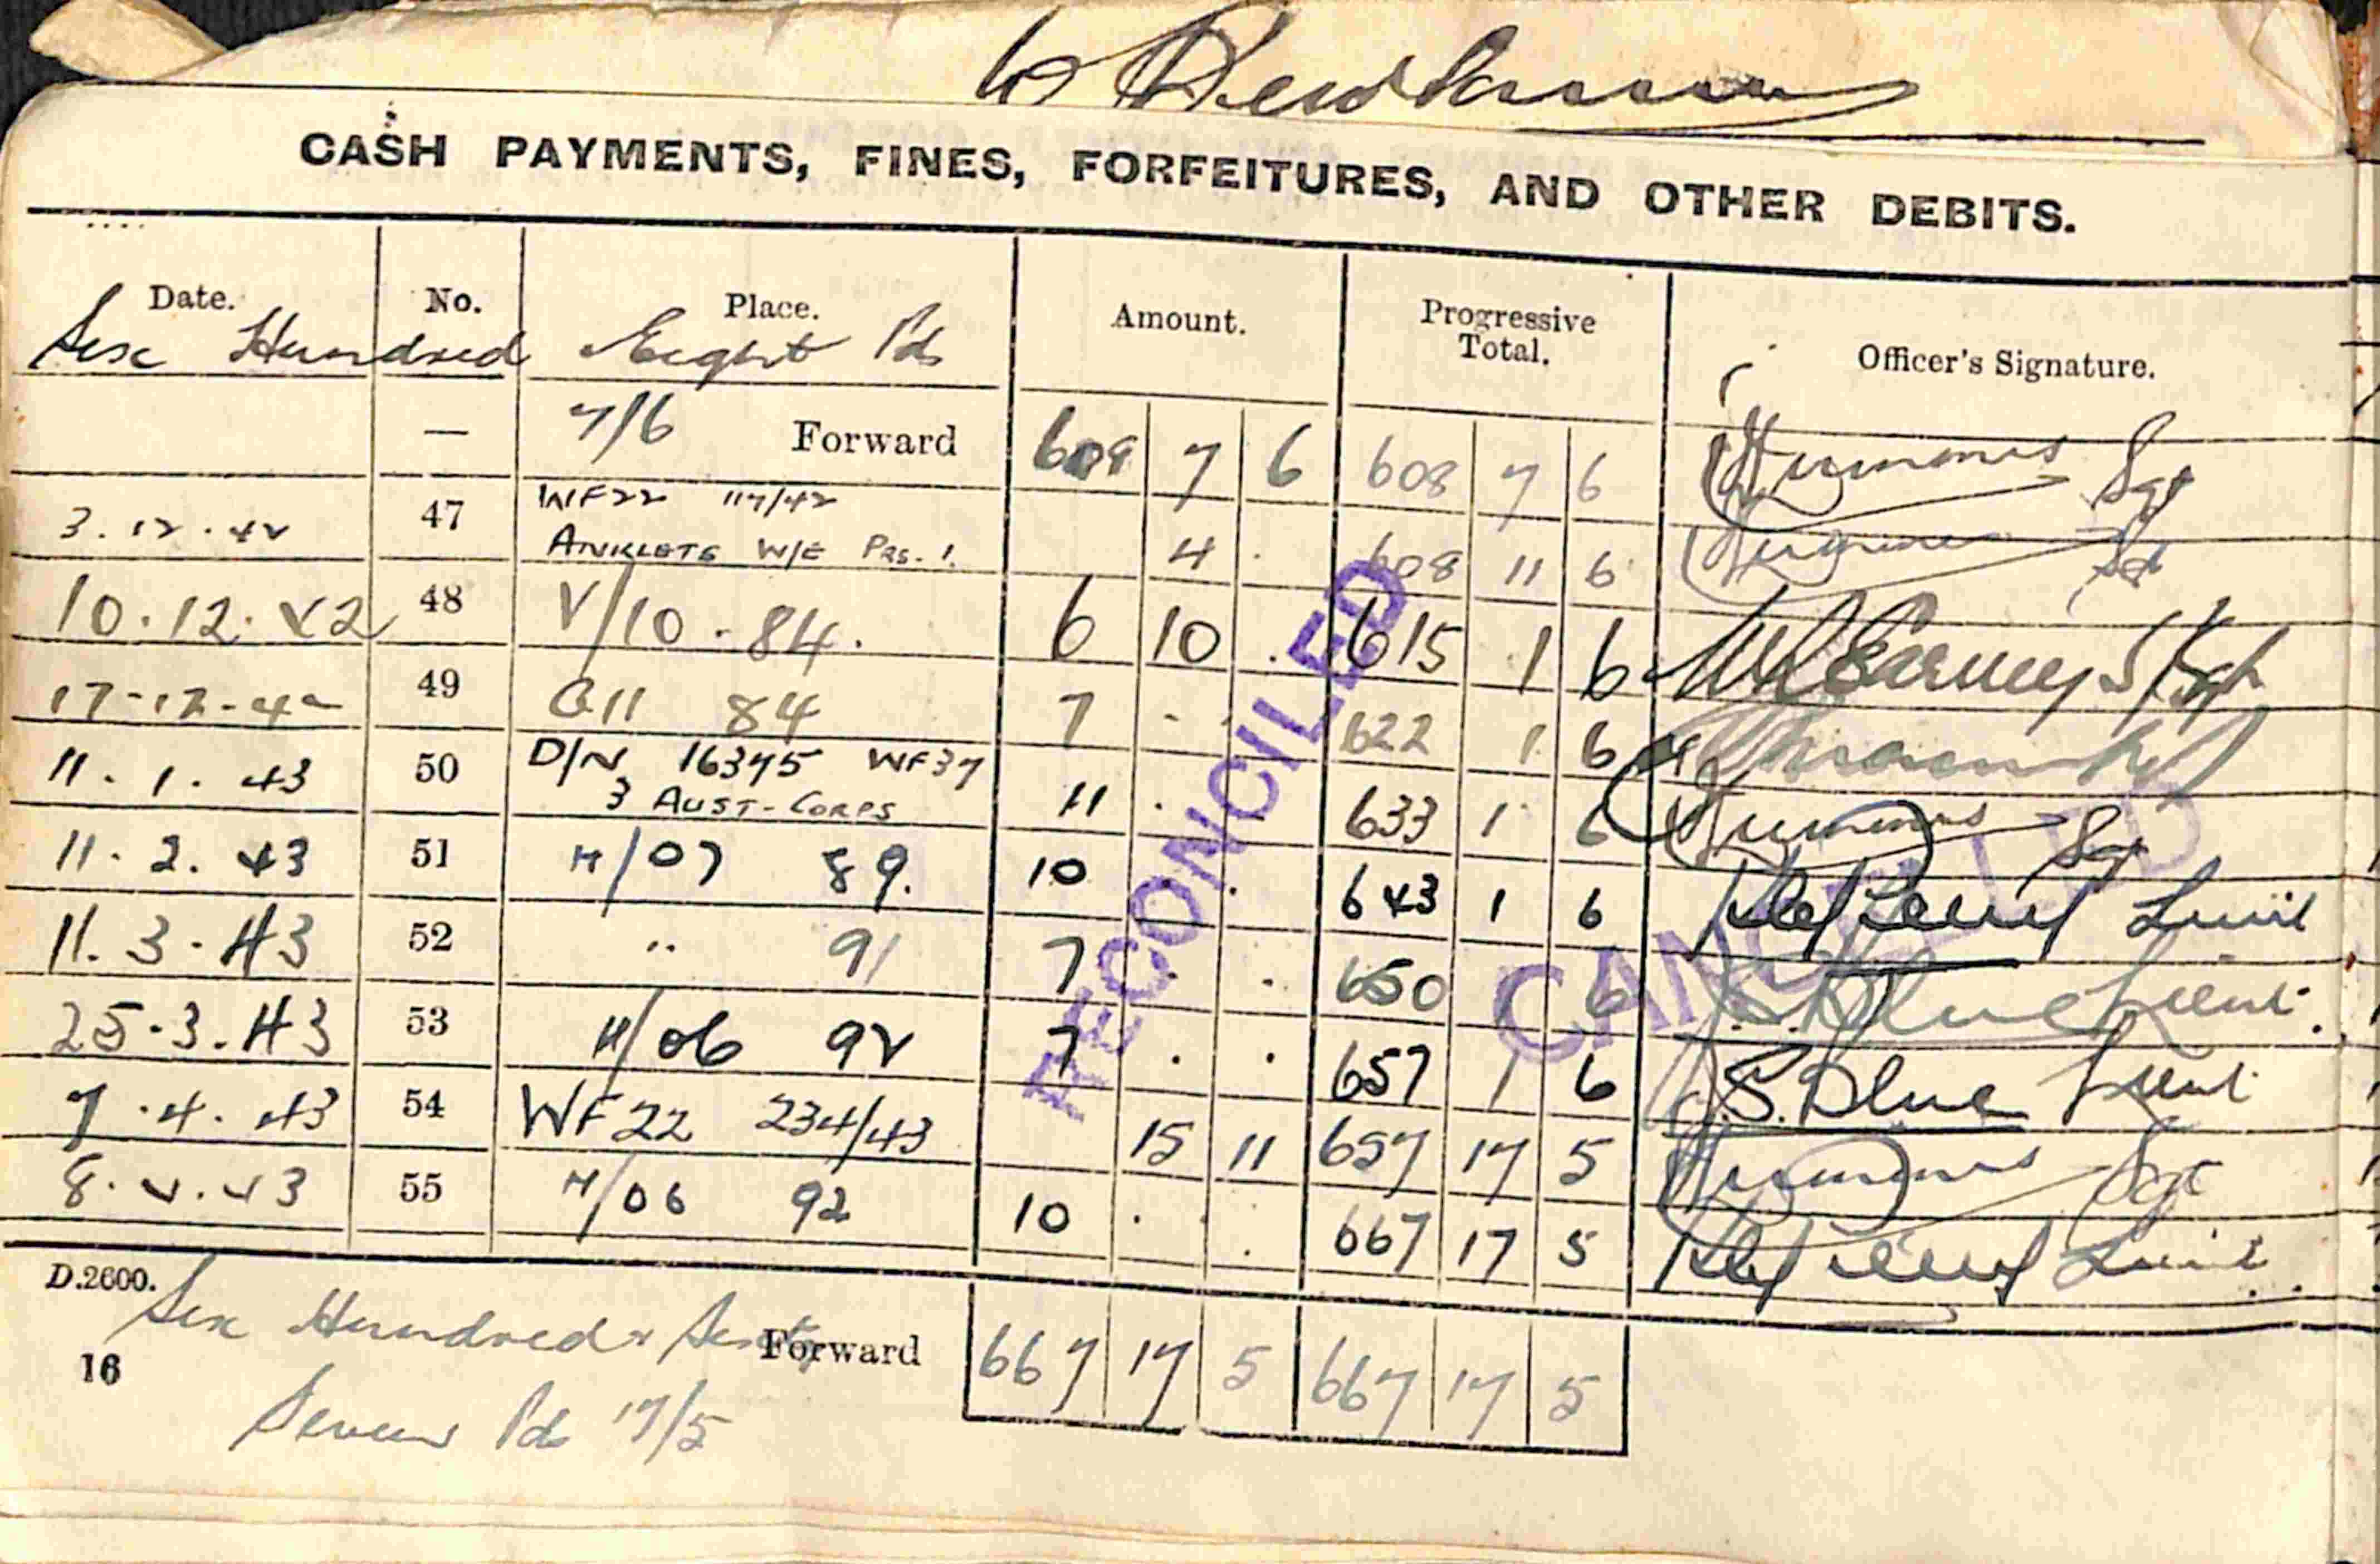 CASH PAYMENTS, FINES, FORFEITURES, AND OTHER DEBITS.
Date. No. Place. Amount. Progressive Total. Officer's Signature.
Six Hundred Eight Pds
— 7/6 Forward 608 7 6 608 7 6 Sgt
3.12.42 47 WF22 117/42 ANKLETS W/E PRS. 1. 4 . 608 11 6 Sgt
10.12.42 48 V/10 - 84. 6 10 . 615 1 6 S/Sgt
17-12-42 49 G11 84 7 - - 622 1 6
11.1.43 50 D/N 16375 WF37 3 AUST-CORPS 11 . 633 1 6 Sgt
11.2.43 51 H/07 89. 10 . . 643 1 6 Lieut
11.3.43 52 " 91 7 . . 650 1 6 Blue Lieut.
25.3.43 53 H/06 92 7 . . 657 1 6 S. Blue Lieut
7.4.43 54 WF22 234/43 15 11 657 17 5 Sgt
8.4.43 55 H/06 92 10 . . 667 17 5 Lieut.
RECONCILED
CANCELLED
D.2600.
Six Hundred & Sixty Forward 667 17 5 667 17 5
16
Seven Pds 17/5